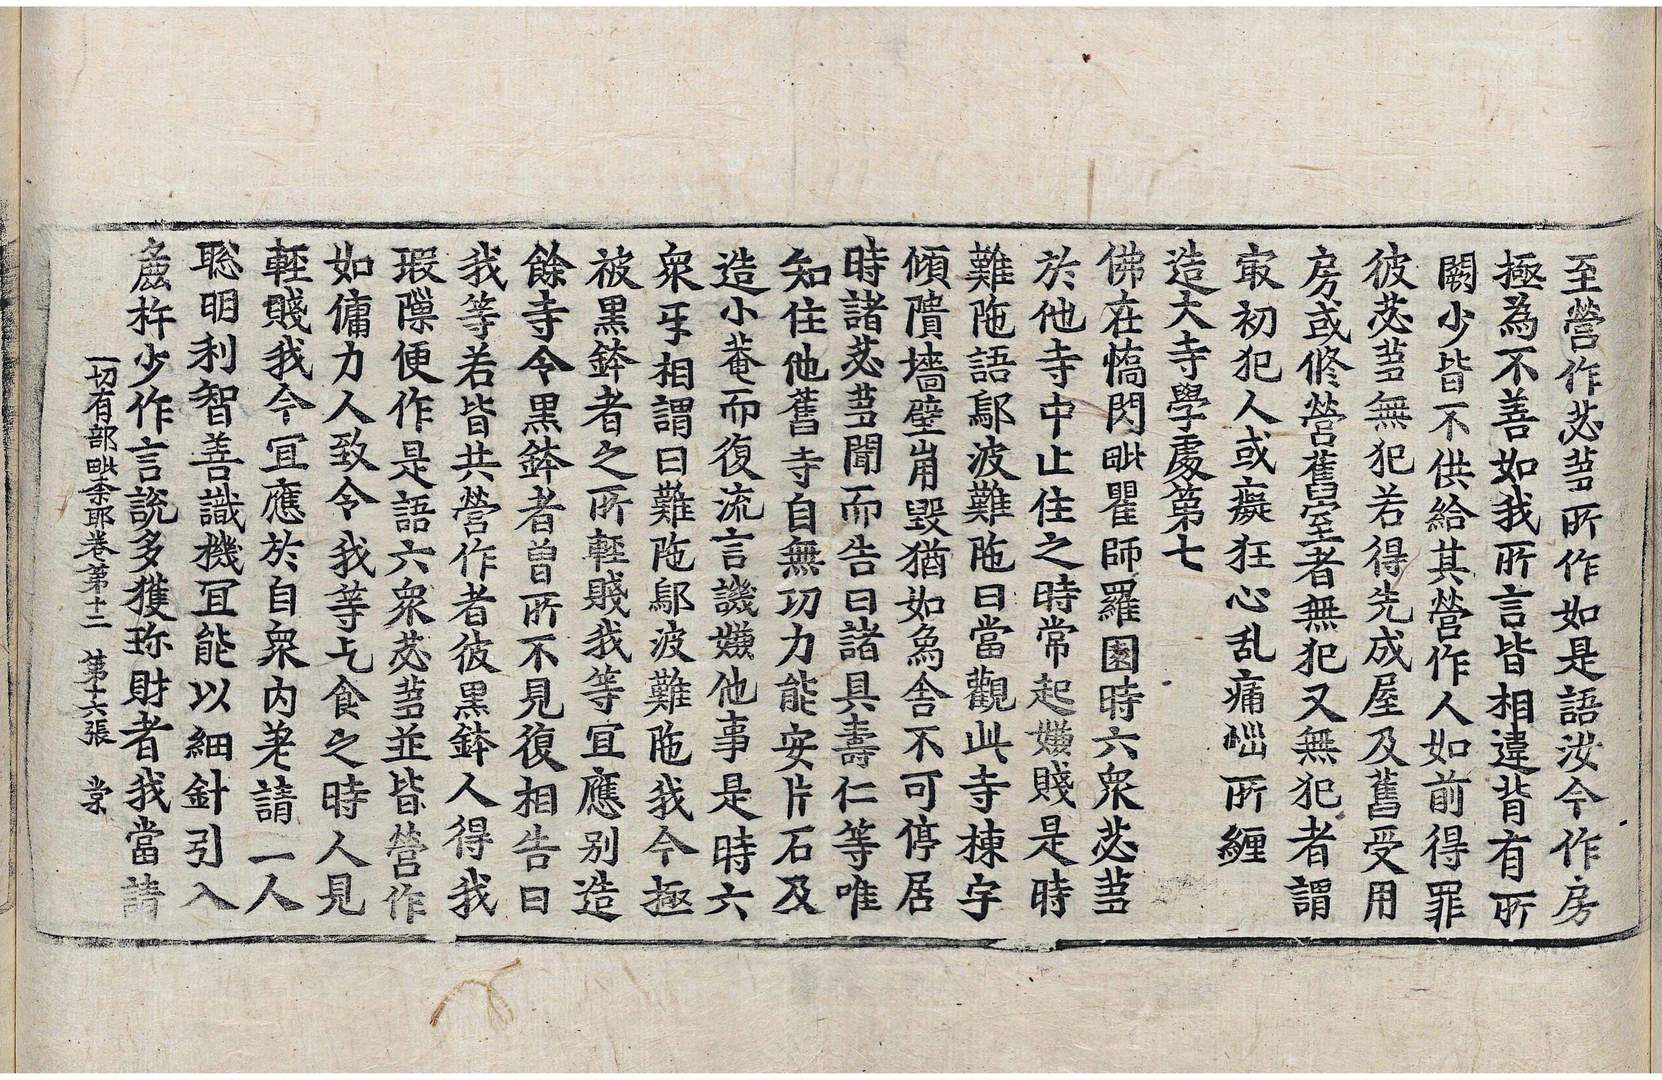 至營作苾芻所作如是語汝今作房
極為不善如我所言皆相違背有所
闕少皆不供給其營作人如前得罪
彼苾芻無犯若得先成屋及舊受用
房或修營舊室者無犯又無犯者謂
㝡初犯人或癡狂心乱痛惱所纏
造大寺學處第七
佛在憍閃毗瞿師羅園時六衆苾芻
於他寺中止住之時常起嫌賤是時
難陁語鄔波難陁曰當觀此寺棟宇
傾隤墻壁崩毀猶如象舍不可停居
時諸苾芻聞而告曰諸具壽仁等唯
知住他舊寺自無功力能安片石及
造小菴而復流言譏嫌他事是時六
衆㸦相謂曰難陁鄔波難陁我今極
被黑鉢者之所輕賤我等宜應別造
餘寺令黑鉢者曾所不見復相告曰
我等若皆共營作者彼黑鉢人得我
瑕隙便作是語六衆苾芻並皆營作
如傭力人致令我等乞食之時人見
輕賤我今宜應於自衆内差請一人
聡明利智善識機宜能以細針引入
麁杵少作言説多獲珎財者我當請
一切有部毗奈耶卷第十二 第十六張 棠